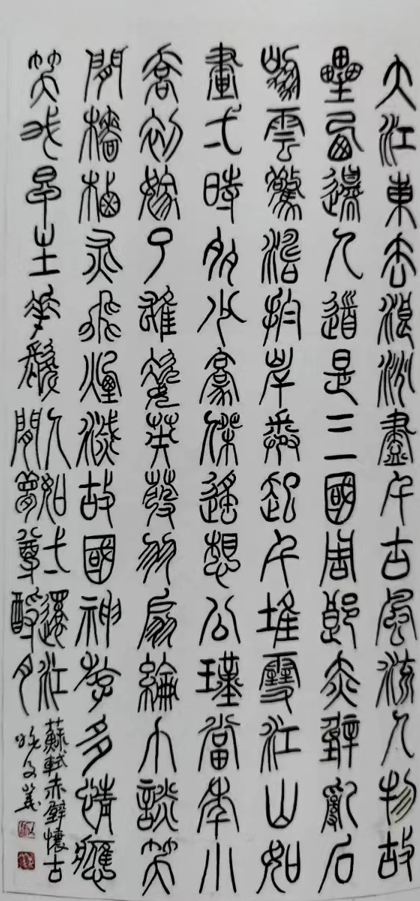 大江東去浪淘盡千古風流人物故
壘西邊人道是三國周郎赤壁亂石
崩雲驚濤拍岸卷起千堆雪江山如
畫一時多少豪傑遙想公瑾當年小
喬初嫁了雄姿英發羽扇綸巾談笑
間檣櫓灰飛煙滅故國神遊多情應
笑我早生華髮人間如夢一尊還酹江月
蘇軾赤壁懷古